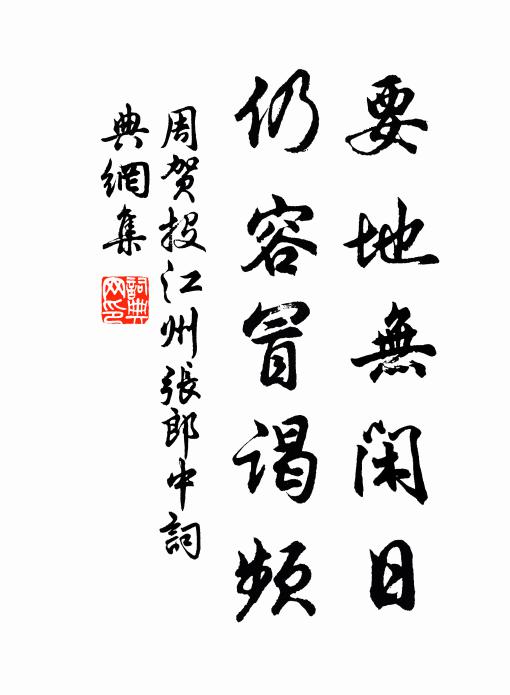 要地無閑日
仍容冒謁頻
周賀投江州張郎中詞
典網集
詞典網印